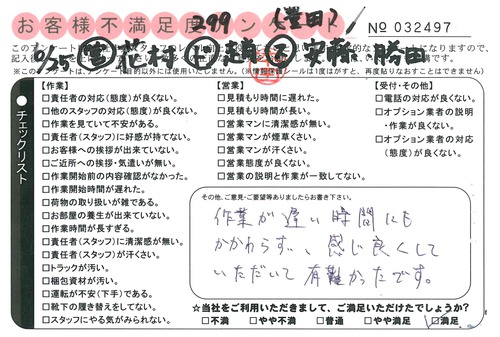 お客様不満足度アンケート
299
(豊田)
№ 032497
10/25 花村 安藤 勝田
チェックリスト
【作業】
□責任者の対応(態度)が良くない。
□他のスタッフの対応(態度)が良くない。
□作業を見ていて不安がある。
□責任者(スタッフ)に好感が持てない。
□お客様への挨拶が出来ていない。
□ご近所への挨拶・気遣いが無い。
□作業開始前の内容確認がなかった。
□作業開始時間が遅れた。
□荷物の取り扱いが雑である。
□お部屋の養生が出来ていない。
□作業時間が長すぎる。
□責任者(スタッフ)に清潔感が無い。
□責任者(スタッフ)が汗くさい。
□トラックが汚い。
□梱包資材が汚い。
□運転が不安(下手)である。
□靴下の履き替えをしてない。
□スタッフにやる気がみられない。
【営業】
□見積もり時間に遅れた。
□見積もり時間が長い。
□営業マンに清潔感が無い。
□営業マンが煙草くさい。
□営業マンが汗くさい。
□営業態度が良くない。
□営業の説明と作業が一致してない。
【受付・その他】
□電話の対応が良くない。
□オプション業者の説明
・作業が良くない。
□オプション業者の対応
(態度)が良くない。
その他、ご意見・ご要望等ありましたらお書き下さい。
作業が遅い時間にも
かかわらず、感じ良くして
いただいて有難かったです。
☆当社をご利用いただきまして、ご満足いただけたでしょうか?
□不満 □やや不満 □普通 □やや満足 □満足